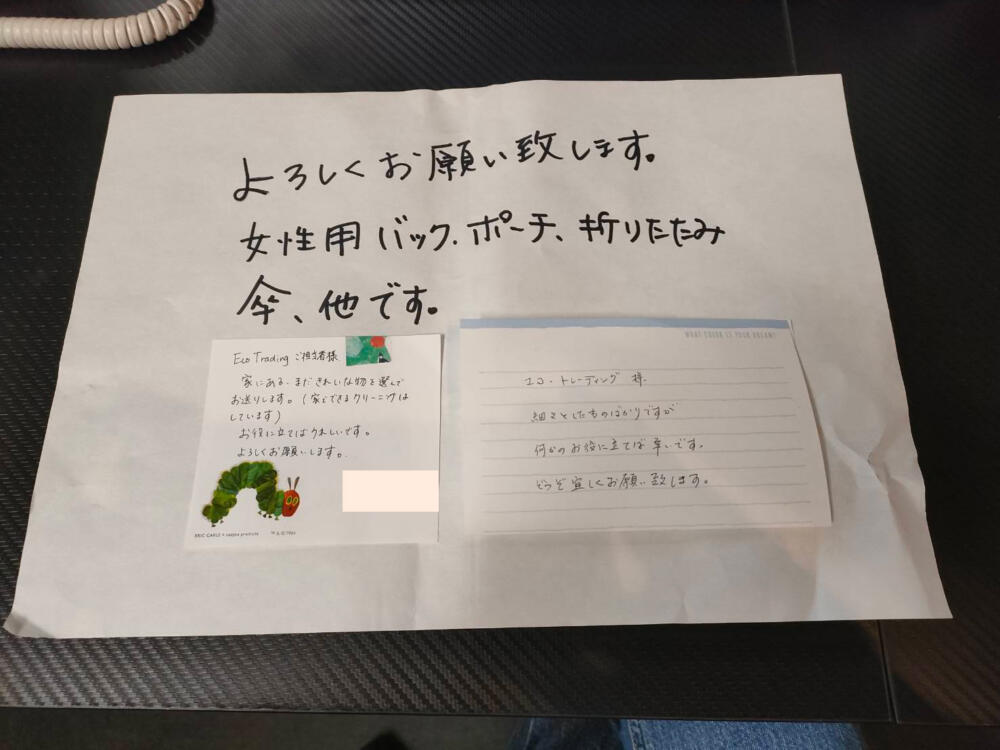 よろしくお願い致します。
女性用バック、ポーチ、折りたたみ
傘、他です。
Eco Trading ご担当者様
家にある、まだきれいな物を選んで
お送りします。(家でできるクリーニングは
しています)
お役に立てばうれしいです。
よろしくお願いします。
ERIC CARLE
WHAT COLOR IS YOUR DREAM?
エコ・トレーディング 様
細々としたものばかりですが
何かのお役に立てば幸いです。
どうぞ宜しくお願い致します。